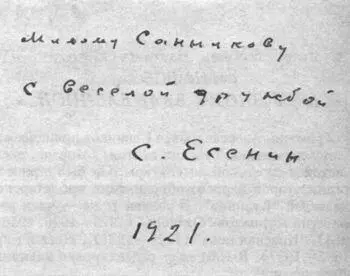 Милому Санникову
с веселой дружбой
С. Есенин
1921.